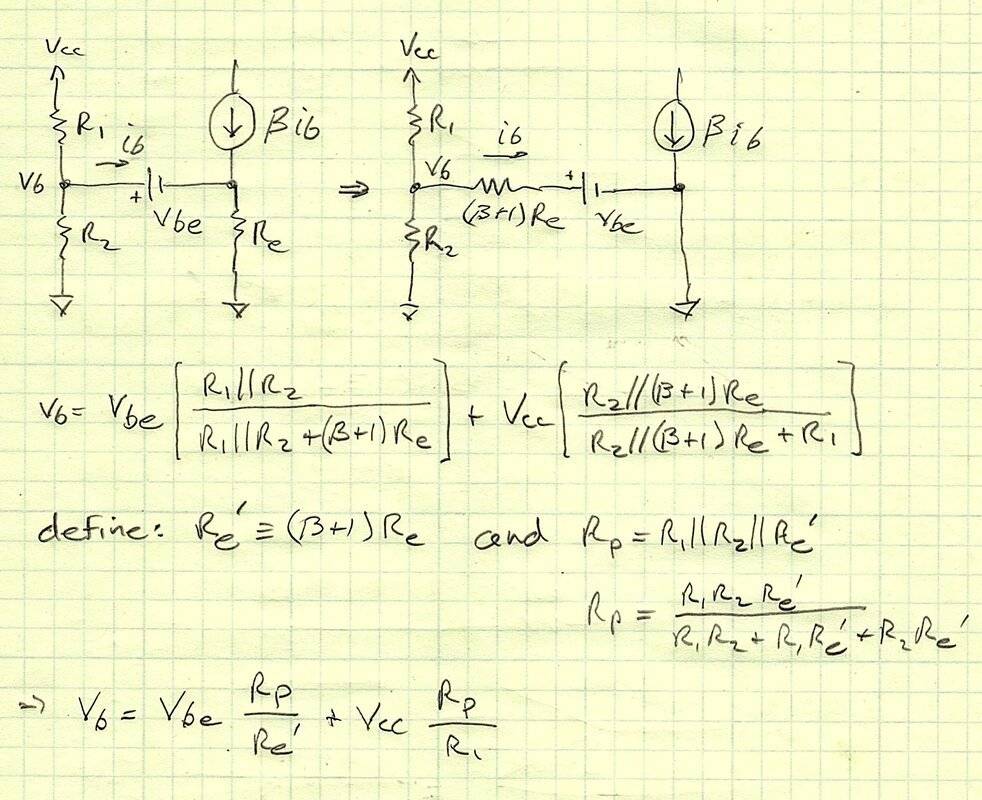 Vcc Vcc
R₁ ib βib R₁ ib βib
Vb + Vbe Vb (β+1)Re + Vbe
R₂ Re ⇒ R₂
Vb = Vbe [ R₁//R₂ / R₁//R₂ + (β+1)Re ] + Vcc [ R₂//(β+1)Re / R₂//(β+1)Re + R₁ ]
define: Re′ ≡ (β+1)Re and Rp = R₁//R₂//Re′
Rp = R₁R₂Re′ / R₁R₂ + R₁Re′ + R₂Re′
⇒ Vb = Vbe Rp / Re′ + Vcc Rp / R₁